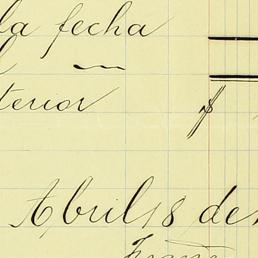 la fecha
terior $
Abril 8 de